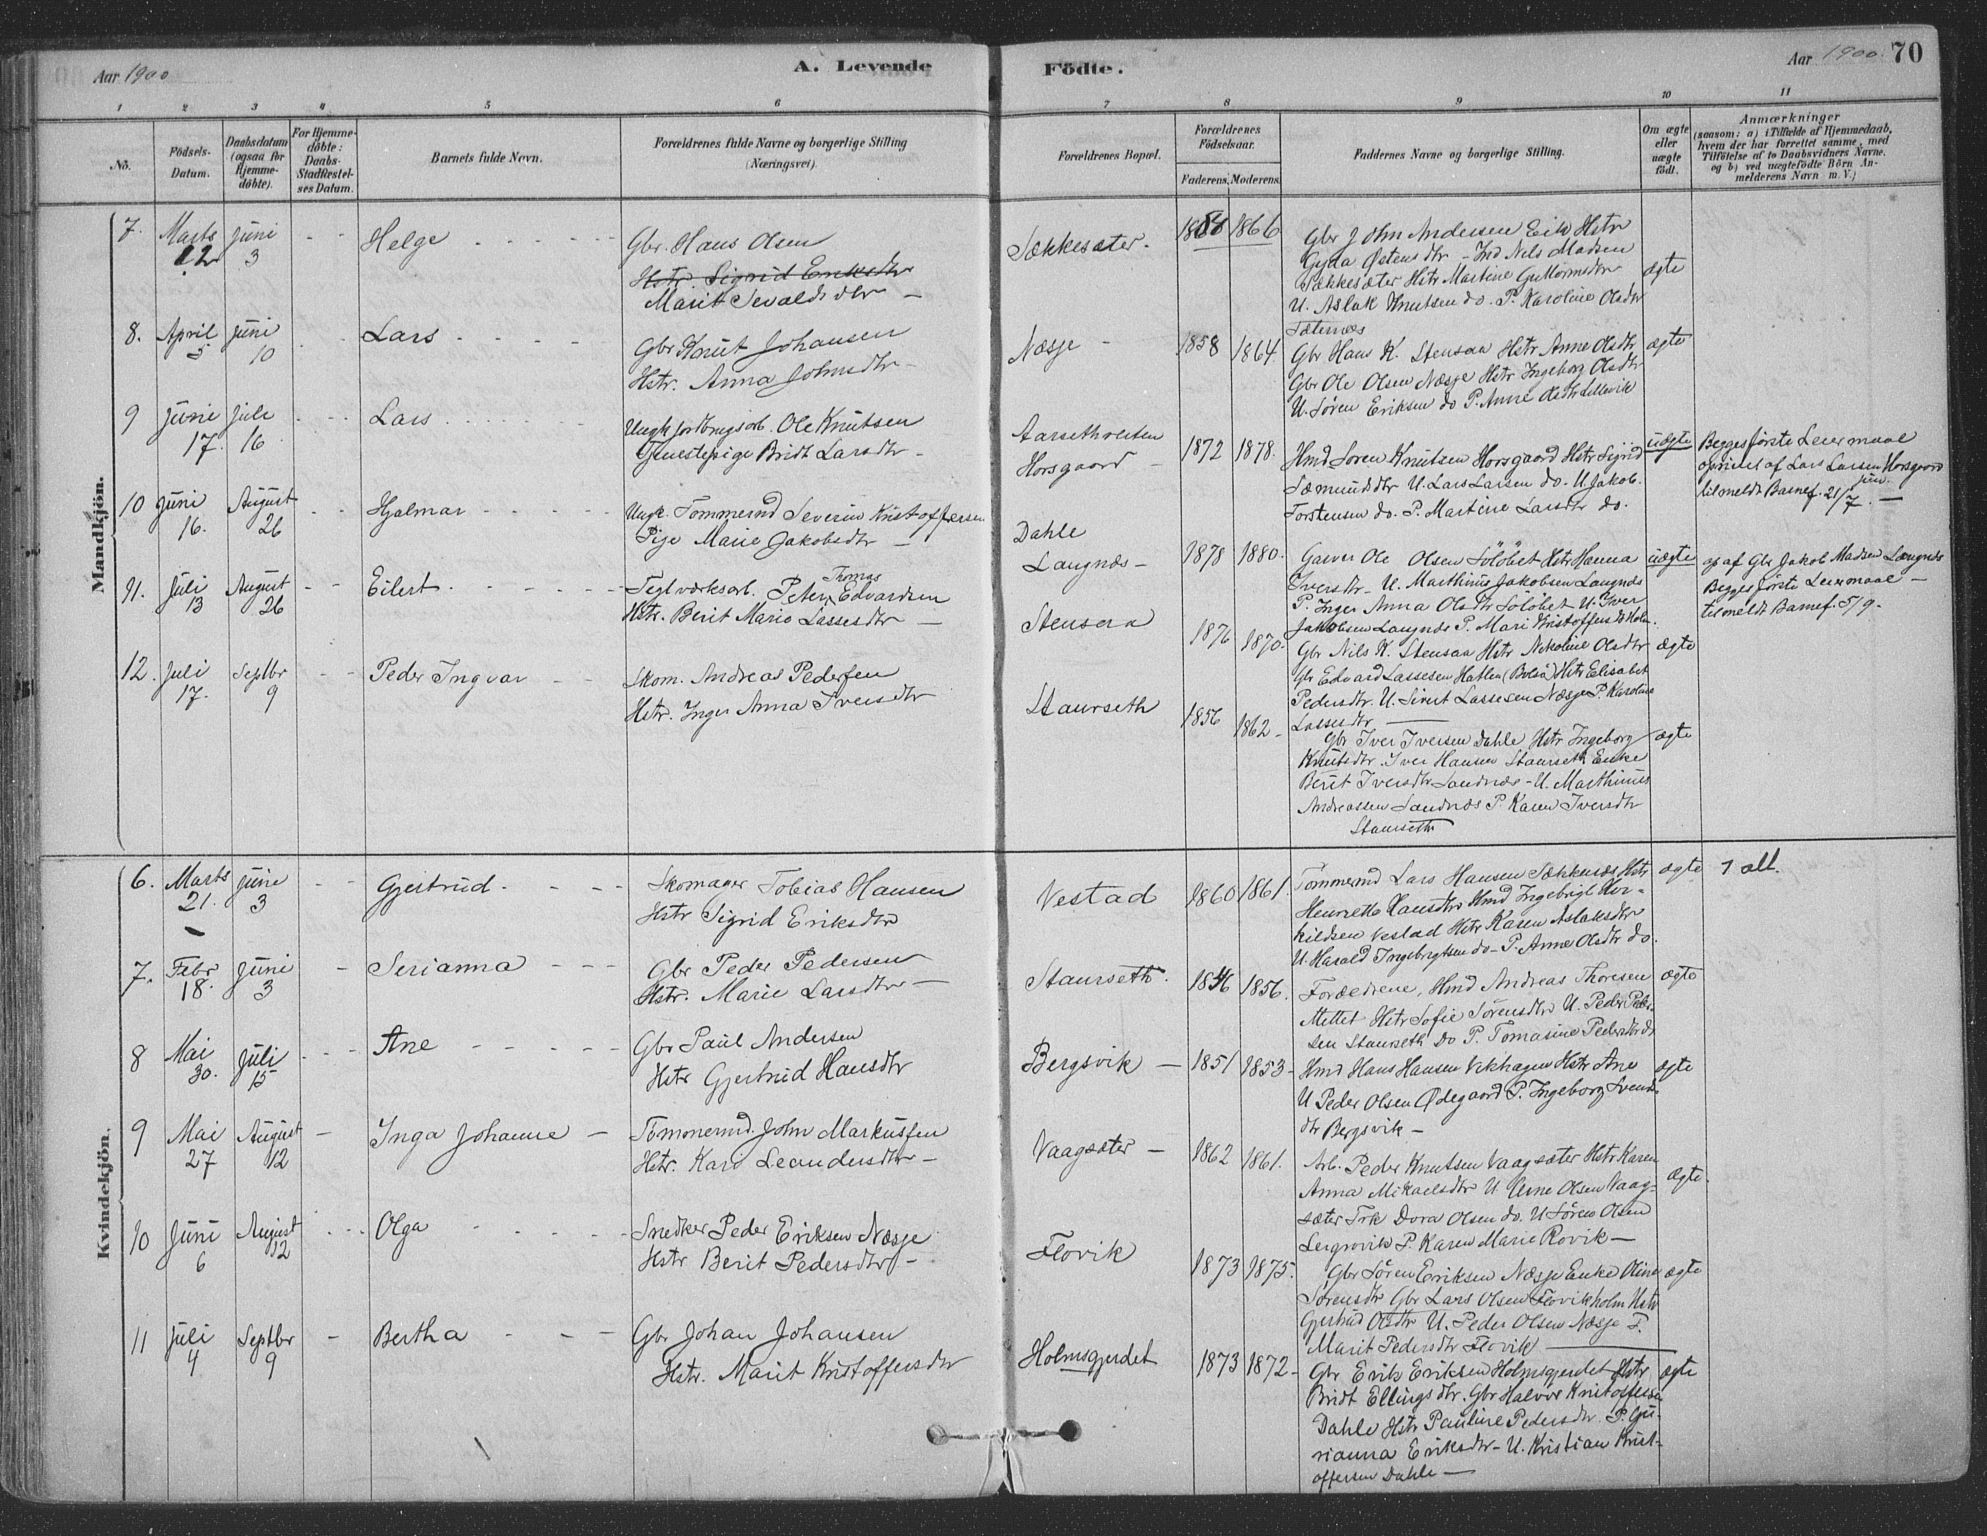 Aar 1900
A. Levende
Födte.
Aar 1900.
70
1 2 3 4 5 6 7 8 9 10 11
No.
Födsels-
Datum.
Daabsdatum
(ogsaa for
Hjemme-
döbte).
For Hjemme-
döbte:
Daabs-
Stadfæstel-
ses Datum.
Barnets fulde Navn.
Forældrenes fulde Navne og borgerlige Stilling
(Næringsvei).
Forældrenes Bopæl.
Forældrenes
Födselsaar.
Faderens. Moderens.
Faddernes Navne og borgerlige Stilling.
Om ægte
eller
uægte
födt.
Anmærkninger
(saasom: a) i Tilfælde af Hjemmedaab,
hvem der har forrettet samme, med
Tilföielse af to Daabsvidners Navne,
og b) ved uægtefödte Börn An-
melderens Navn m. V.)
Mandkjön.
7. Marts 12 Juni 3 Helge
Gbr. Hans Olsen
Hstr. Sigrid Eriksdtr
Marit Sevaldsdtr
Sækkesæter. 1866
Gbr John Andersen Eik Hstr
Gyda Østensdtr - Ind Nils Madsen
Sækkesæter Hstr Martine Guttormsdtr
U. Aslak Knutsen do. P. Karoline Olsdtr
Sæternes
ægte
8. April 5 Juni 10 Lars
Gbr Knut Johansen
Hstr. Anna Johnsdtr
Næsje 1858 1864
Gbr Hans K. Stensaa Hstr Anne Olsdtr
Gbr Ole Olsen Næsje Hstr Ingeborg Olsdtr
U. Søren Eriksen do P. Anne Olsdtr Lillevik
ægte
9 Junie 17. Juli 16 Lars
Ungk jordbrugsarb. Ole Knutsen
Tjenestepige Bridt Larsdtr
Aarsethreiten
Horsgaard 1872 1878.
Hmd Søren Knutsen Horsgaard Hstr Sigrid
Sæmundsdtr U. Lars Larsen do. U Jakob
Torstensen do. P. Martine Larsdtr do.
uægte
Begges første Leiermaal
opgivet af Lars Larsen Horsgaard
jun.
tilmeldt Barnef. 21/7
10 Juni 16. August 26 Hjalmar
Ungk. Tømmermd Severin Kristoffersen
Pige Marie Jakobsdtr
Dahle
Langnæs 1878 1880.
Garver Ole Olsen Sölöbet Hstr Hanna
Iversdtr. U. Marthinus Jakobsen Langnæs
P. Inger Anna Olsdtr Sölöbet U. Iver
Jakobsen Langnæs P. Mari Kristoffersdtr Holm.
uægte
op af Gbr Jakob Madsen Langnæs
Begges første Leiermaal
tilmeldt Barnef. 5/9.
11. Juli 13 August 26 Eilert
Teglværksarb. Peter Thomas Edvardsen
Hstr. Berit Marie Lassesdtr
Stensøra 1876 1870.
Gbr Nils K. Stensaa Hstr Nikoline Olsdtr
Gbr Edvard Lassesen Hatlen (Bolsø) Hstr Elisabet
Pedersdtr. U. Sivert Lassesen Næsje P. Karoline
Lassesdtr
ægte
12. Juli 17. Septbr 9 Peder Ingvar
Skom. Andreas Pedersen
Hstr. Inger Anna Iversdtr
Staurseth 1856 1862
Gbr Iver Iversen Dahle Hstr Ingeborg
Knutsdtr. Iver Hansen Staurseth Enke
Berit Iversdtr Sandnæs - U. Marthinus
Andreassen Sandnæs P. Karen Iversdtr
Staurseth
ægte
Kvindekjön.
6. Marts 21. Juni 3 Gjertrud
Skomager Tobias Hansen
Hstr Sigrid Eriksdtr
Vestad 1860 1861
Tømmermd Lars Hansen Sækkenæs Hstr
Henrette Hansdtr Hmd Ingebrigt Tor-
kildsen Vestad Hstr Karen Aslaksdtr
U. Harald Ingebrigtsen do - P. Anne Olsdtr do.
ægte
7 all.
7. Febr 18. Juni 3 Serianna
Gbr Peder Pedersen
Hstr. Marie Larsdtr
Staurseth. 1856.
Forældrene, Hmd Andreas Thoresen
Mittet Hstr Sofie Sørensdtr U. Peder Peder-
sen Staurseth do P. Tomasine Pedersdtr do
ægte
8 Mai 30. Juli 15 Ane
Gbr Paul Andersen
Hstr Gjertrud Hansdtr
Bergsvik 1851 1853
Hmd Hans Hansen Vikhagen Hstr Ane
U Peder Olsen Ødegaard P. Ingeborg Svends-
dtr Bergsvik
ægte
9 Mai 27 August 12 Inga Johanne
Tømmermd. John Markussen
Hstr. Kari Leandersdtr
Vaagsæter 1862 1861.
Arb. Peder Knutsen Vaagsæter Hstr Karen
Anna Mikaelsdtr U Arne Olsen Vaag-
sæter Frk Dora Olsen do. U Søren Olsen
Leirgrovik P. Karen Marie Rovik
Ægte.
10 Juni 6 August 12 Olga
Snedker Peder Eriksen Næsje
Hstr Berit Pedersdtr
Flovik 1873 1875.
Gbr Søren Eriksen Næsje Enke Oline
Sørensdtr Gbr Lars Olsen Flovikholm Hstr
Gjertrud Olsdtr U. Peder Olsen Næsje P.
Marit Pedersdtr Flovik
ægte
11 Juli 4 Septbr 9 Bertha
Gbr Johan Johansen
Hstr. Marit Kristoffersdtr
Holmsgjerdet 1873 1872
Gbr Erik Eriksen Holmsgjerdet Hstr
Bridt Ellingsdtr. Gbr Halvor Kristoffersen
Dahle Hstr Pauline Pedersdtr. P. Gu-
rianna Eriksdtr - U. Kristian Krist-
offersen Dahle
ægte